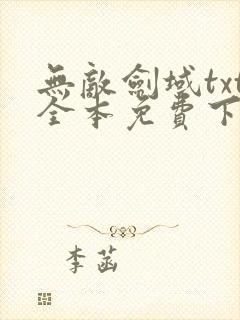 無敵劍域txt
全本免費下
李菡